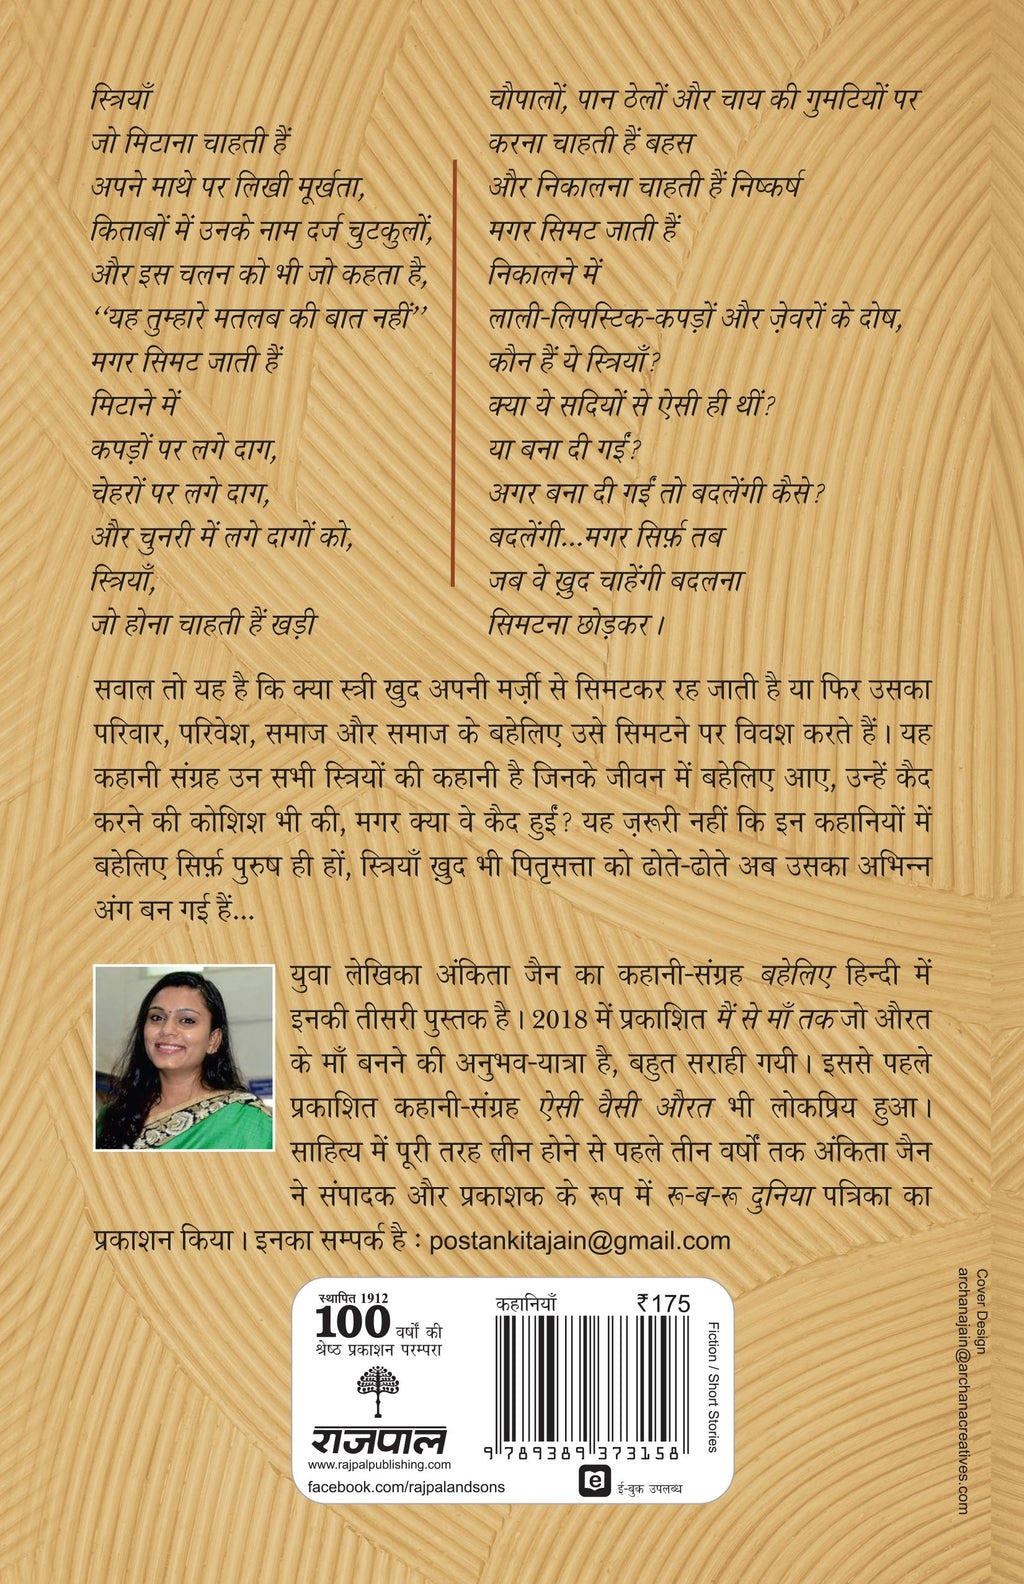 स्त्रियाँ
जो मिटाना चाहती हैं
अपने माथे पर लिखी मूर्खता,
किताबों में उनके नाम दर्ज चुटकुलों,
और इस चलन को भी जो कहता है,
“यह तुम्हारे मतलब की बात नहीं”
मगर सिमट जाती हैं
मिटाने में
कपड़ों पर लगे दाग,
चेहरों पर लगे दाग,
और चुनरी में लगे दागों को,
स्त्रियाँ,
जो होना चाहती हैं खड़ी
चौपालों, पान ठेलों और चाय की गुमटियों पर
करना चाहती हैं बहस
और निकालना चाहती हैं निष्कर्ष
मगर सिमट जाती हैं
निकालने में
लाली-लिपस्टिक-कपड़ों और ज़ेवरों के दोष,
कौन हैं ये स्त्रियाँ?
क्या ये सदियों से ऐसी ही थीं?
या बना दी गईं?
अगर बना दी गईं तो बदलेंगी कैसे?
बदलेंगी...मगर सिर्फ़ तब
जब वे ख़ुद चाहेंगी बदलना
सिमटना छोड़कर।
सवाल तो यह है कि क्या स्त्री खुद अपनी मर्ज़ी से सिमटकर रह जाती है या फिर उसका
परिवार, परिवेश, समाज और समाज के बहेलिए उसे सिमटने पर विवश करते हैं। यह
कहानी संग्रह उन सभी स्त्रियों की कहानी है जिनके जीवन में बहेलिए आए, उन्हें कैद
करने की कोशिश भी की, मगर क्या वे कैद हुईं? यह ज़रूरी नहीं कि इन कहानियों में
बहेलिए सिर्फ़ पुरुष ही हों, स्त्रियाँ ख़ुद भी पितृसत्ता को ढोते-ढोते अब उसका अभिन्न
अंग बन गई हैं...
युवा लेखिका अंकिता जैन का कहानी-संग्रह बहेलिए हिन्दी में
इनकी तीसरी पुस्तक है। 2018 में प्रकाशित मैं से माँ तक जो औरत
के माँ बनने की अनुभव-यात्रा है, बहुत सराही गयी। इससे पहले
प्रकाशित कहानी-संग्रह ऐसी वैसी औरत भी लोकप्रिय हुआ।
साहित्य में पूरी तरह लीन होने से पहले तीन वर्षों तक अंकिता जैन
ने संपादक और प्रकाशक के रूप में रू-ब-रू दुनिया पत्रिका का
प्रकाशन किया। इनका सम्पर्क है : postankitajain@gmail.com
स्थापित 1912
100 वर्षों की
श्रेष्ठ प्रकाशन परम्परा
राजपाल
www.rajpalpublishing.com
facebook.com/rajpalandsons
कहानियाँ ₹175
9 789389 373158
ई-बुक उपलब्ध
Fiction / Short Stories
Cover Design
archanajain@archanacreatives.com